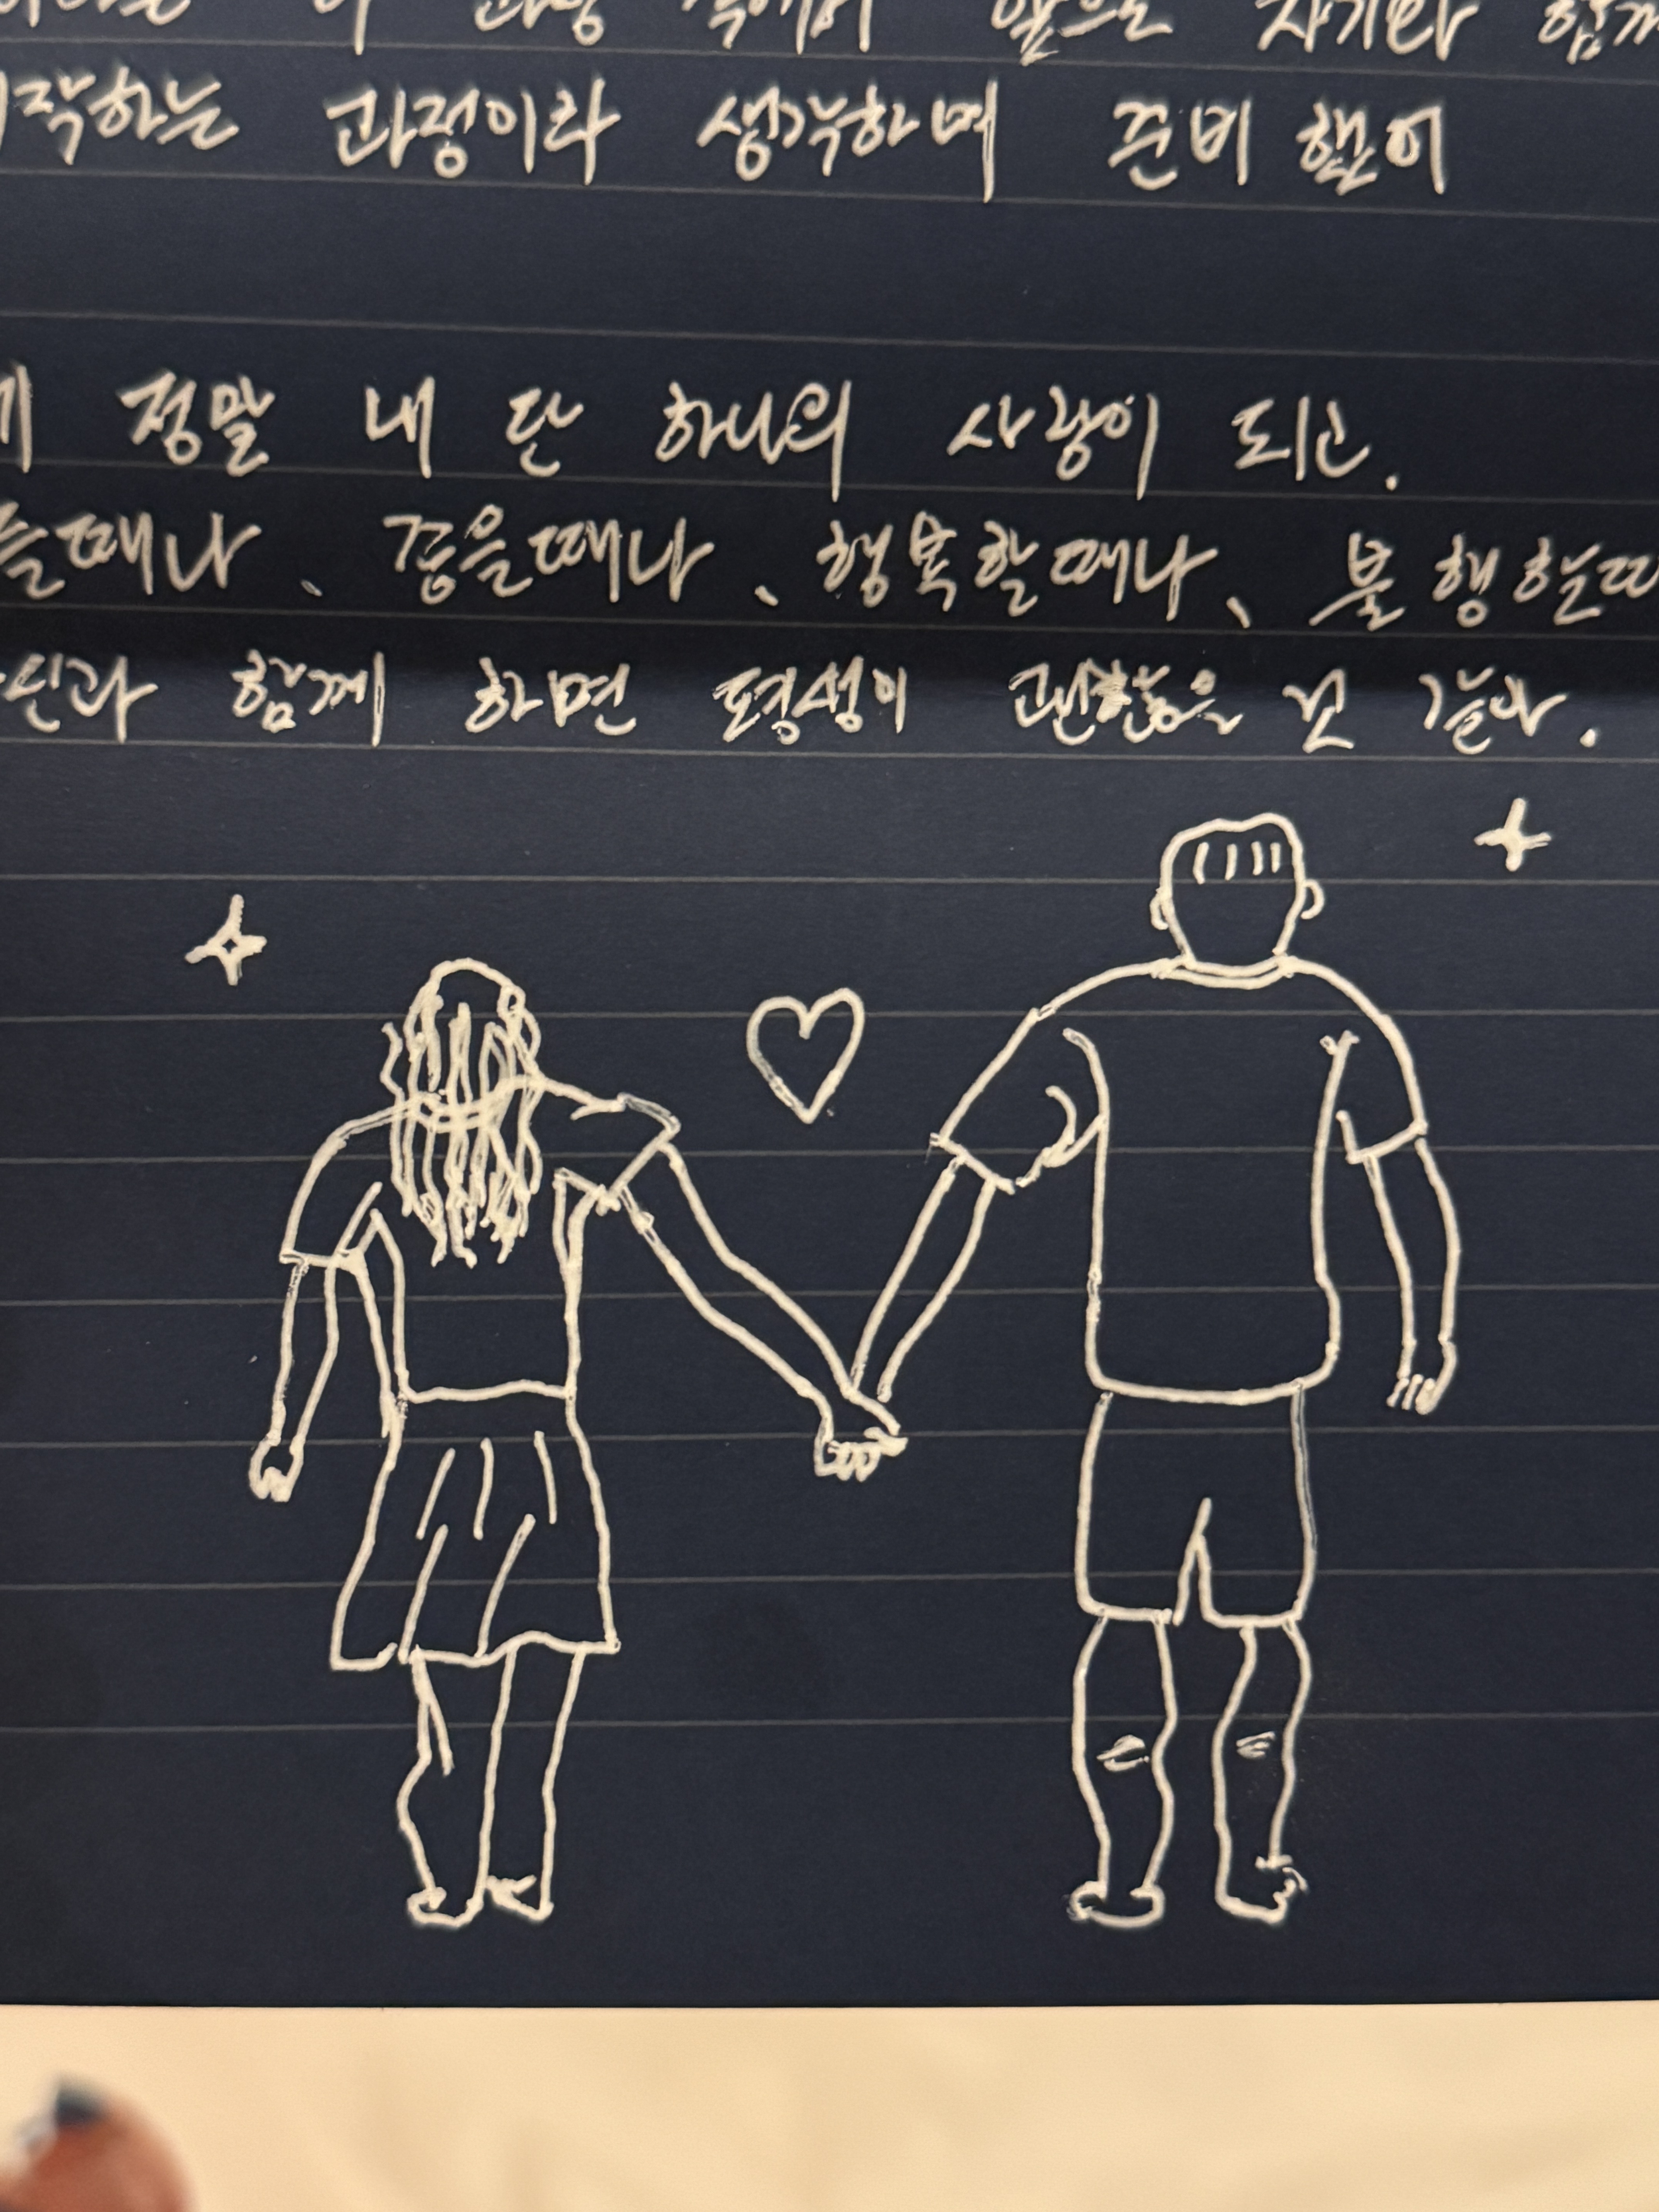 과정 속에서 앞으로 자기와 함께
시작하는 과정이라 생각하며 준비 했어
정말 내 단 하나의 사랑이 되고.
좋을때나、행복할때나、불행할때
함께 하면 평생이 괜찮을 것 같아.